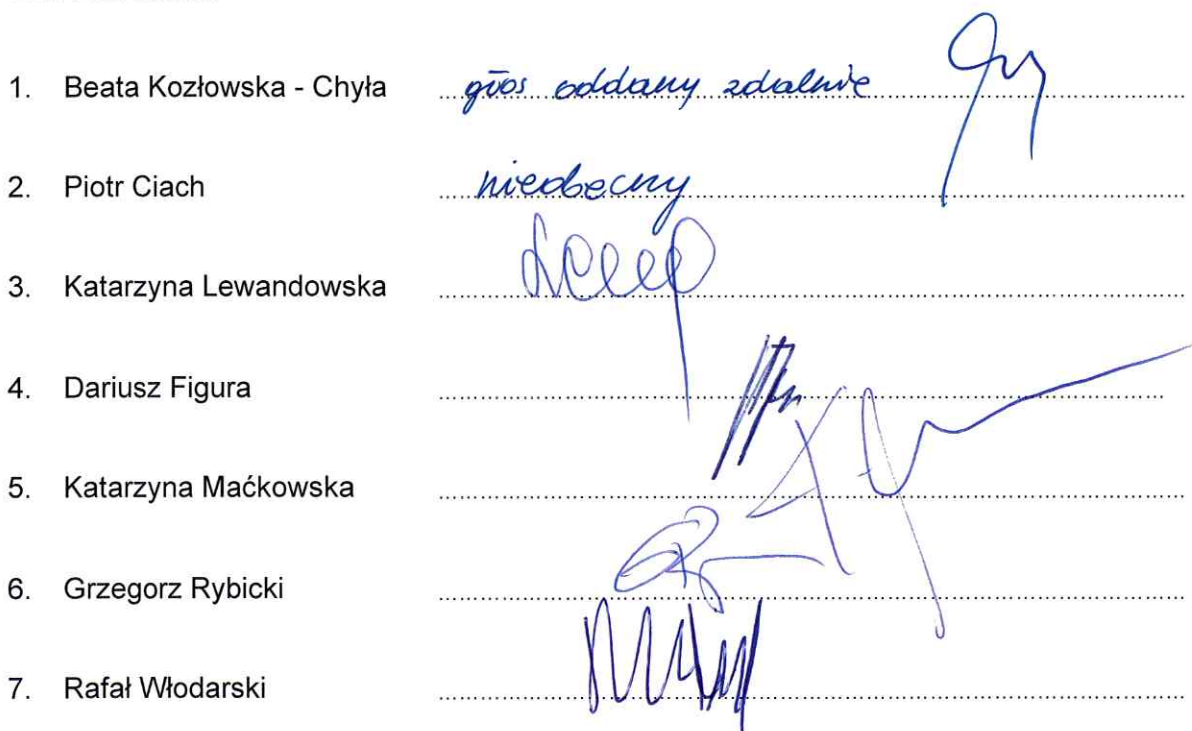 1. Beata Kozłowska - Chyła głos oddany zdalnie
2. Piotr Ciach nieobecny
3. Katarzyna Lewandowska
4. Dariusz Figura
5. Katarzyna Maćkowska
6. Grzegorz Rybicki
7. Rafał Włodarski